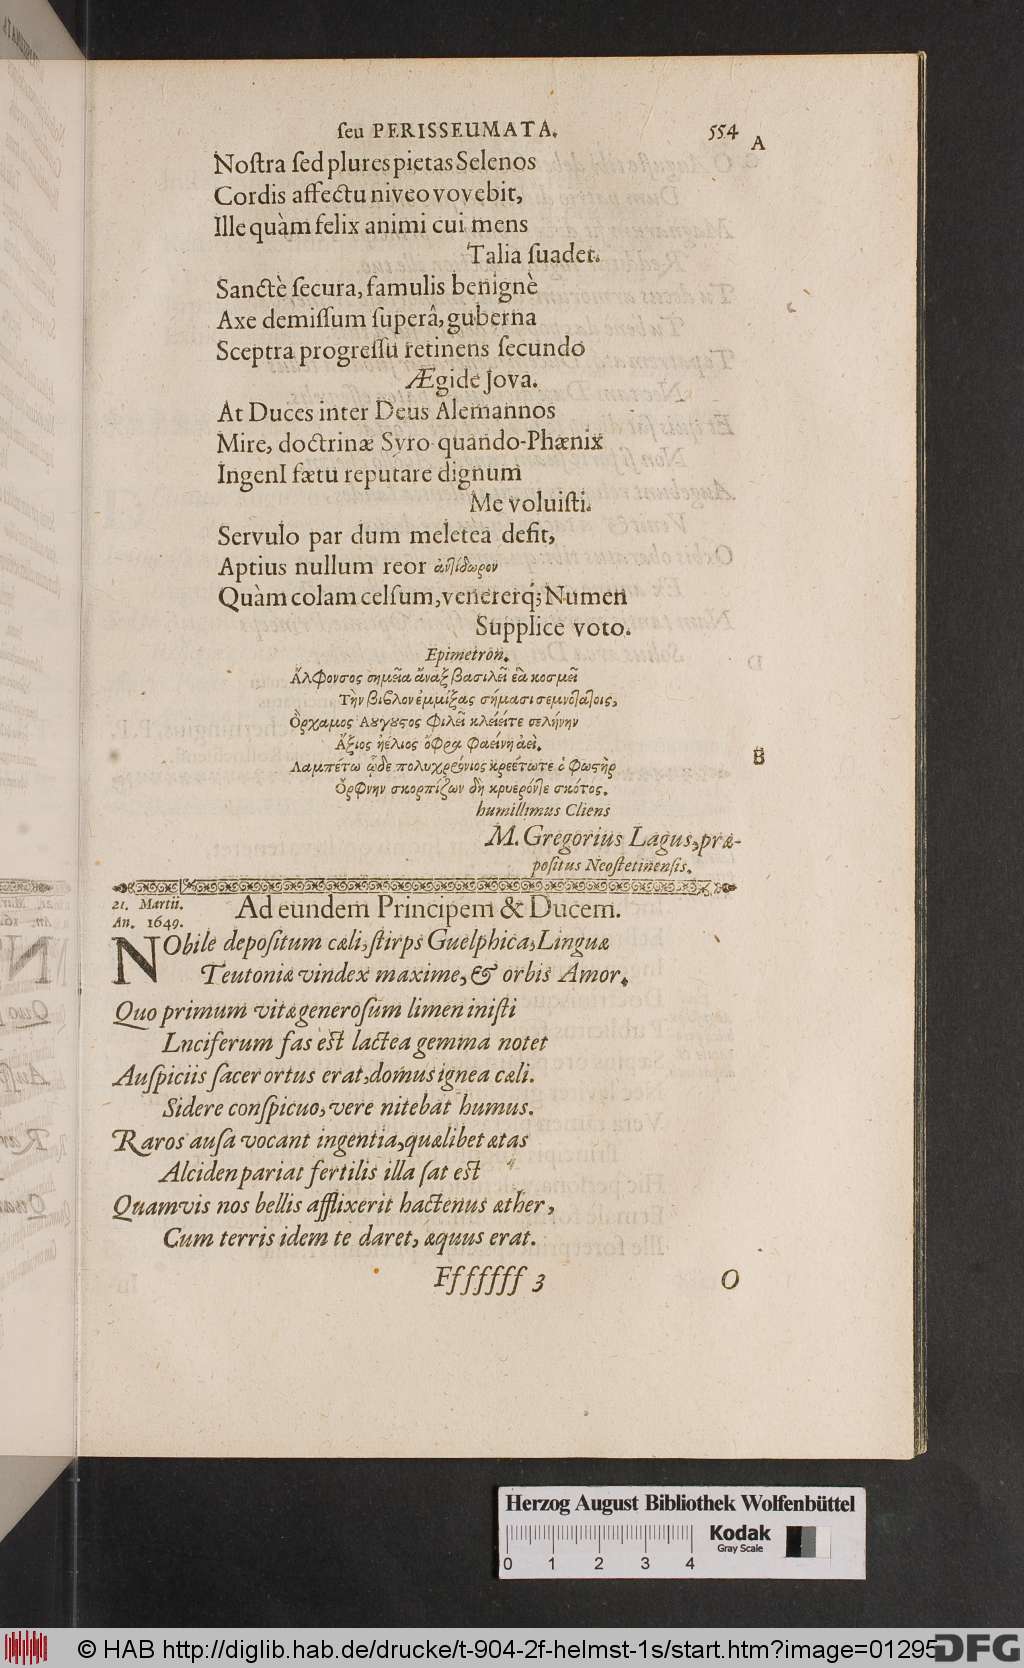 ſeu PERISSEUMATA. 554
A
Noſtra ſed plures pietas Selenos
Cordis affectu niveo vovebit,
Ille quàm felix animi cui mens
Talia ſuadet.
Sanctè ſecura, famulis benignè
Axe demiſſum ſuperâ, guberna
Sceptra progreſſu retinens ſecundo
Ægide Jova.
At Duces inter Deus Alemannos
Mire, doctrinæ Syro quando-Phænix
IngenI fætu reputare dignum
Me voluiſti.
Servulo par dum meletea deſit,
Aptius nullum reor ἀντίδωρον
Quàm colam celſum, venererq́; Numen
Supplice voto.
Epimetron.
Ἄλφονσος σημεῖα ἄναξ βασιλεῖ ἐὰ κοσμεῖ
Τὴν βιβλον ἐμμίξας σήμασι σεμνοτάτοις,
Ὄρχαμος Αὔγυςος φιλεῖ κλείειτε σελήνην
Ἄξιος ἠέλιος ὄφρα φαείνη ἀεὶ.
Λαμπέτω ὧδε πολυχρόνιος κρεέτωτε ὁ φωςὴρ
Ὄρφνην σκορπίζων δὴ κρυερόντε σκότος.
B
humillimus Cliens
M. Gregorius Lagus, præ-
poſitus Neoſtetinenſis.
21. Martii.
An. 1649.
Ad eundem Principem & Ducem.
NObile depoſitum cæli, ſtirps Guelphica, Linguæ
Teutoniæ vindex maxime, & orbis Amor.
Quo primum vitæ generoſum limen iniſti
Lnciferum fas eſt lactea gemma notet
Auſpiciis ſacer ortus erat, domus ignea cæli.
Sidere conſpicuo, vere nitebat humus.
Raros auſa vocant ingentia, quælibet ætas
Alciden pariat fertilis illa ſat eſt
Quamvis nos bellis afflixerit hactenus æther,
Cum terris idem te daret, æquus erat.
Fffffff 3 O
Herzog August Bibliothek Wolfenbüttel
Kodak
Gray Scale
0 1 2 3 4
© HAB http://diglib.hab.de/drucke/t-904-2f-helmst-1s/start.htm?image=01295
DFG